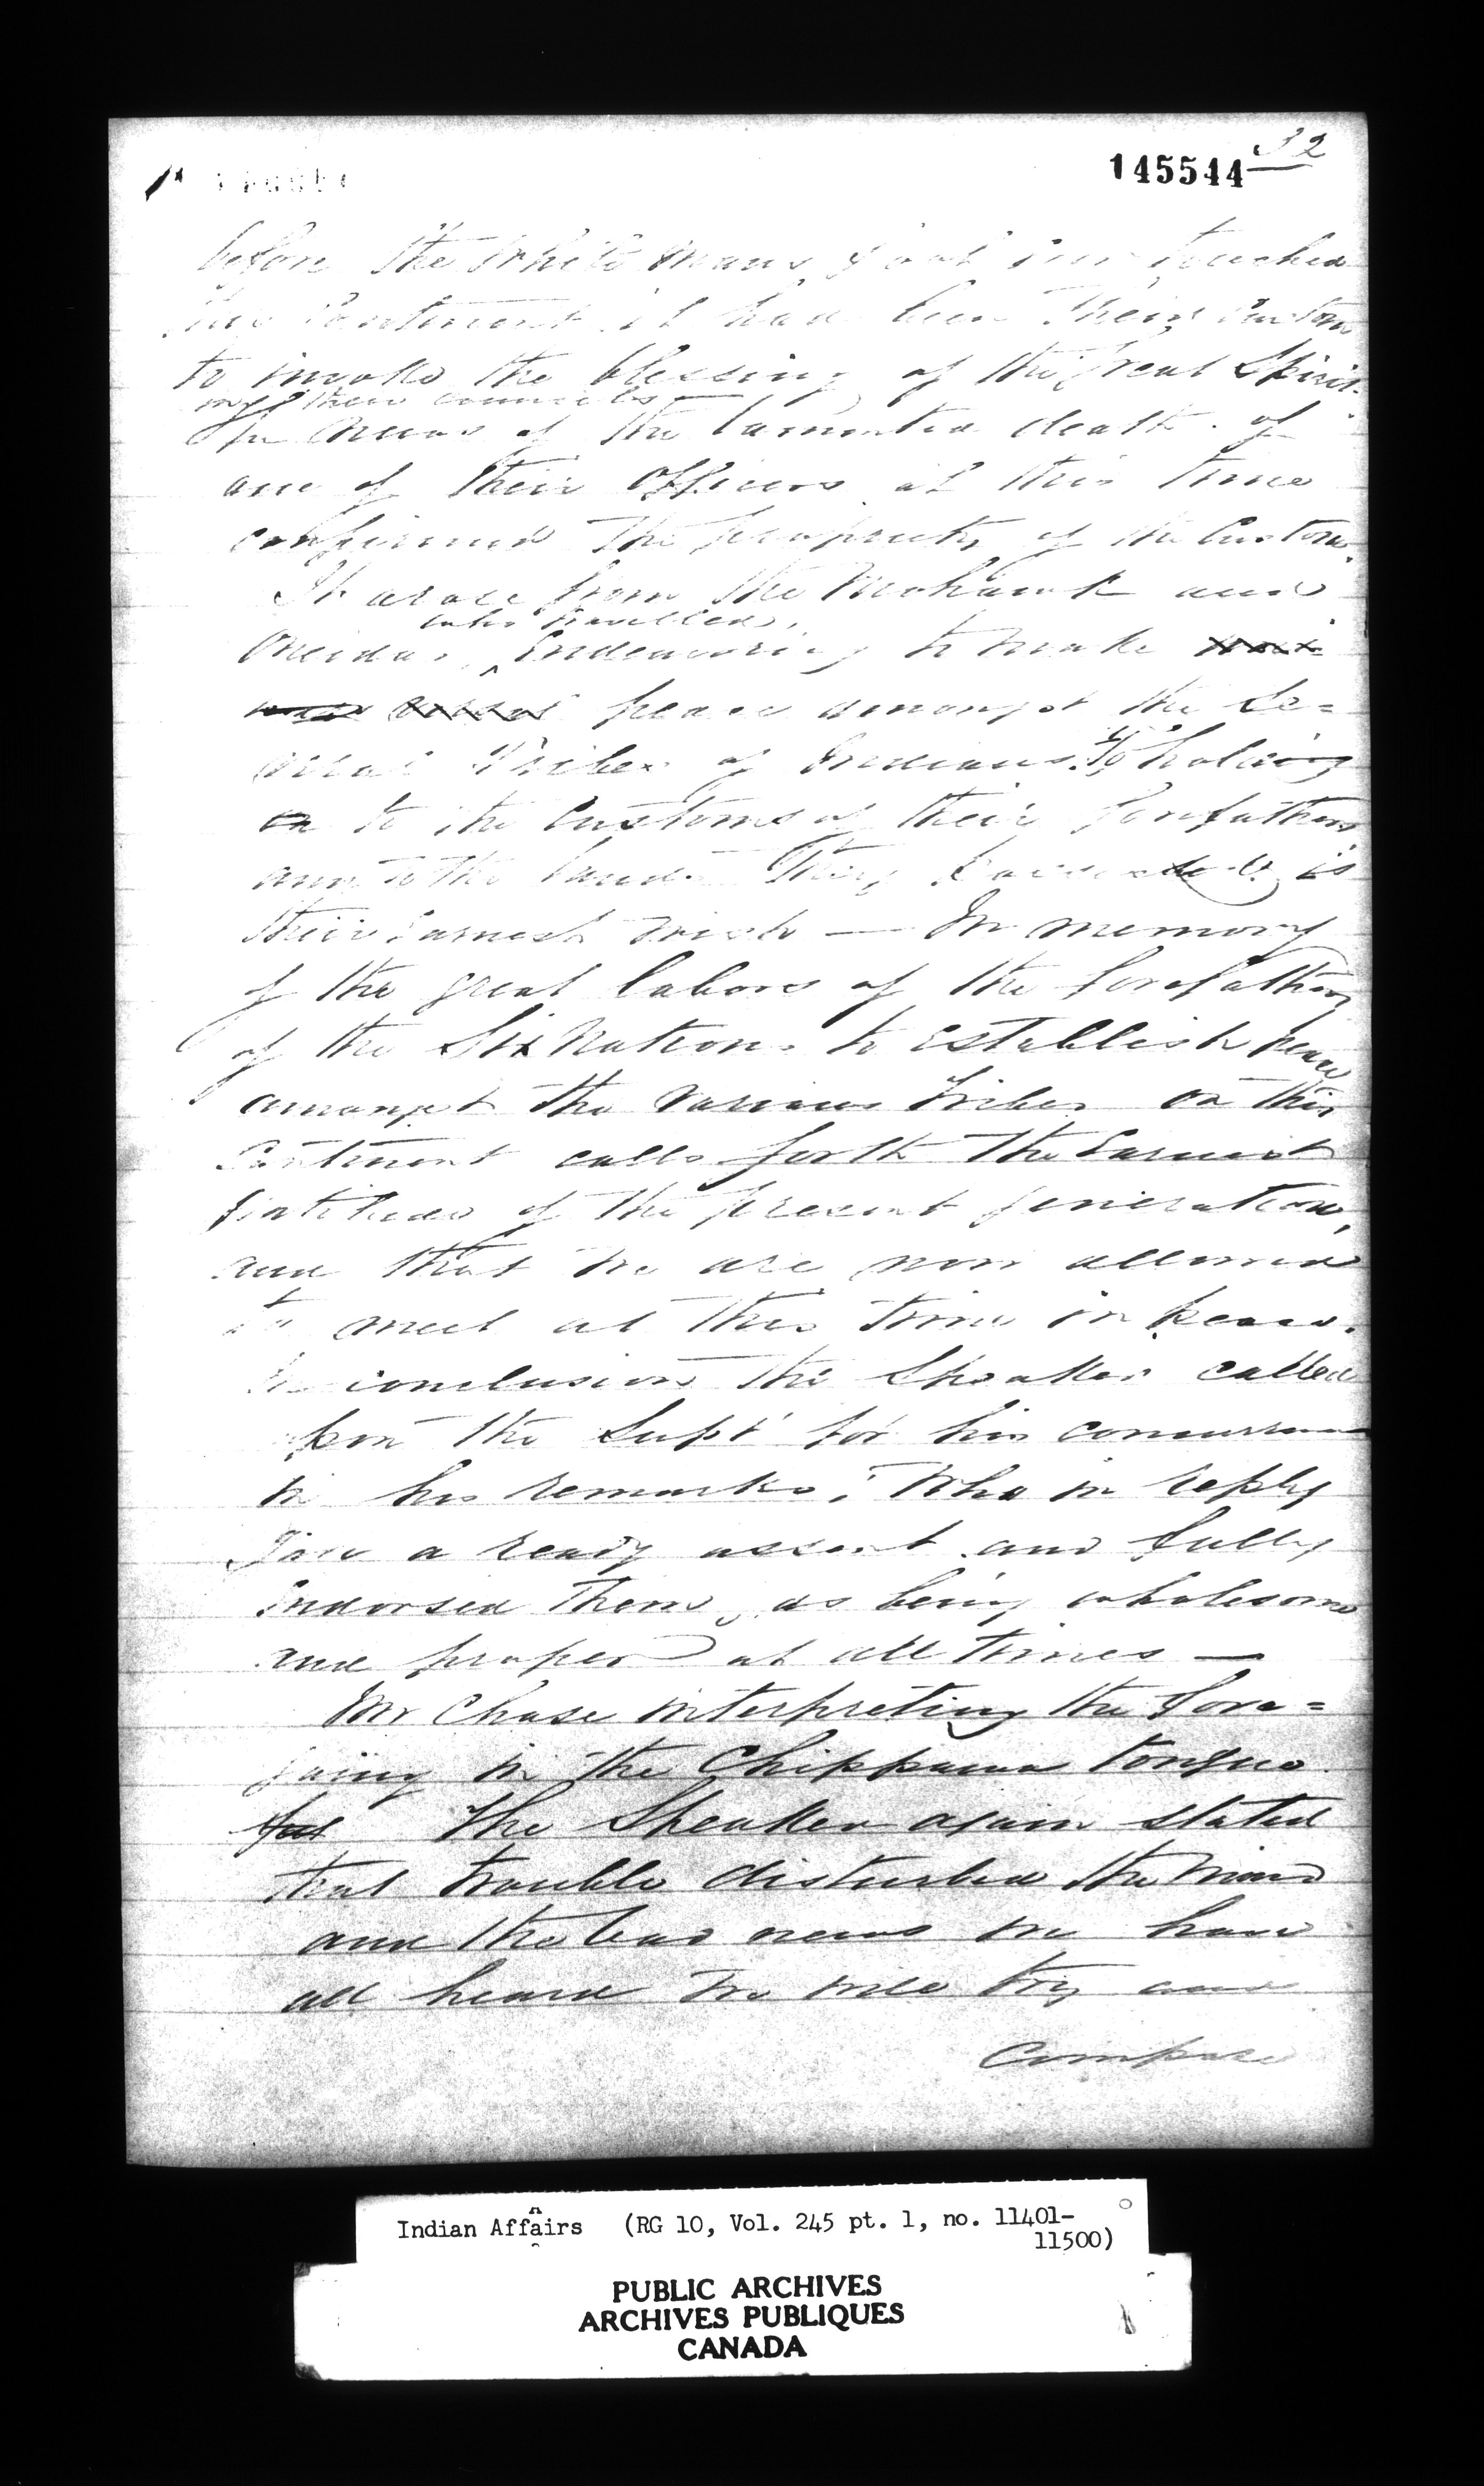 32
145544
before the White mans foot ever touched
this Continent it had been their custom
to invoke the blessing of the Great Spirit
on their councils —
The news of the lamented death of
one of their Officers at this time
confirmed the propriety of the Custom.
It arose from the Mohawk and
who travelled,
Oneidas, Endeavoring to make
peace amongst the Se=
veral Tribes of Indians. To holding
on to the Customs of their forefathers
and to the lands they is
their earnest wish — In memory
of the great labors of the forefathers
of the Six Nations to establish peace
amongst the various tribes on this
Continent calls forth the Earnest
gratitude of the present generation,
and that we are now allowed
to meet at this time in peace.
In conclusion the Speaker called
upon the Supt for his concurrence
in his remarks, Who in reply
Gave a ready assent and fully
Endorsed them, as being wholesome
and proper at all times —
Mr Chase interpreting the fore=
going in the Chippewa tongue.
The Speaker again stated
that trouble disturbed the mind
and the bad news we have
all heard we will try and
Compose
Indian Affairs (RG 10, Vol. 245 pt. 1, no. 11401-
11500)
PUBLIC ARCHIVES
ARCHIVES PUBLIQUES
CANADA